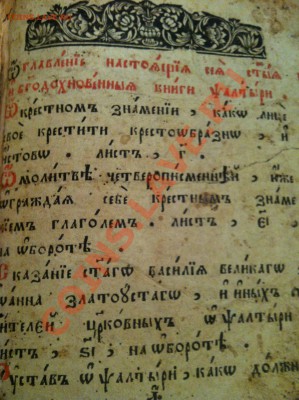 Ѡглавленїе настоѧщїѧ сеѧ ст҃ыѧ
и богодохновенныѧ книги ѱалтыри
Ѡ крестномъ знаменїи, какѡ лице
свое крестити крестообразнѡ, и
истовѡ. листъ, г҃.
Ѡ молитвѣ четверописменнѣй, и иже
ѡграждаѧ себе крестнымъ знаме
нїемъ глаголемъ. листъ, є҃і
на ѡборотѣ
Сказанїе ст҃агѡ василїѧ великагѡ
златоустагѡ, и иныхъ
церковныхъ ѡ ѱалтыри
листъ, ѕ҃і, на ѡборотѣ.
Уставъ ѡ ѱалтыри, какѡ должни
COINS.LAVE.RU